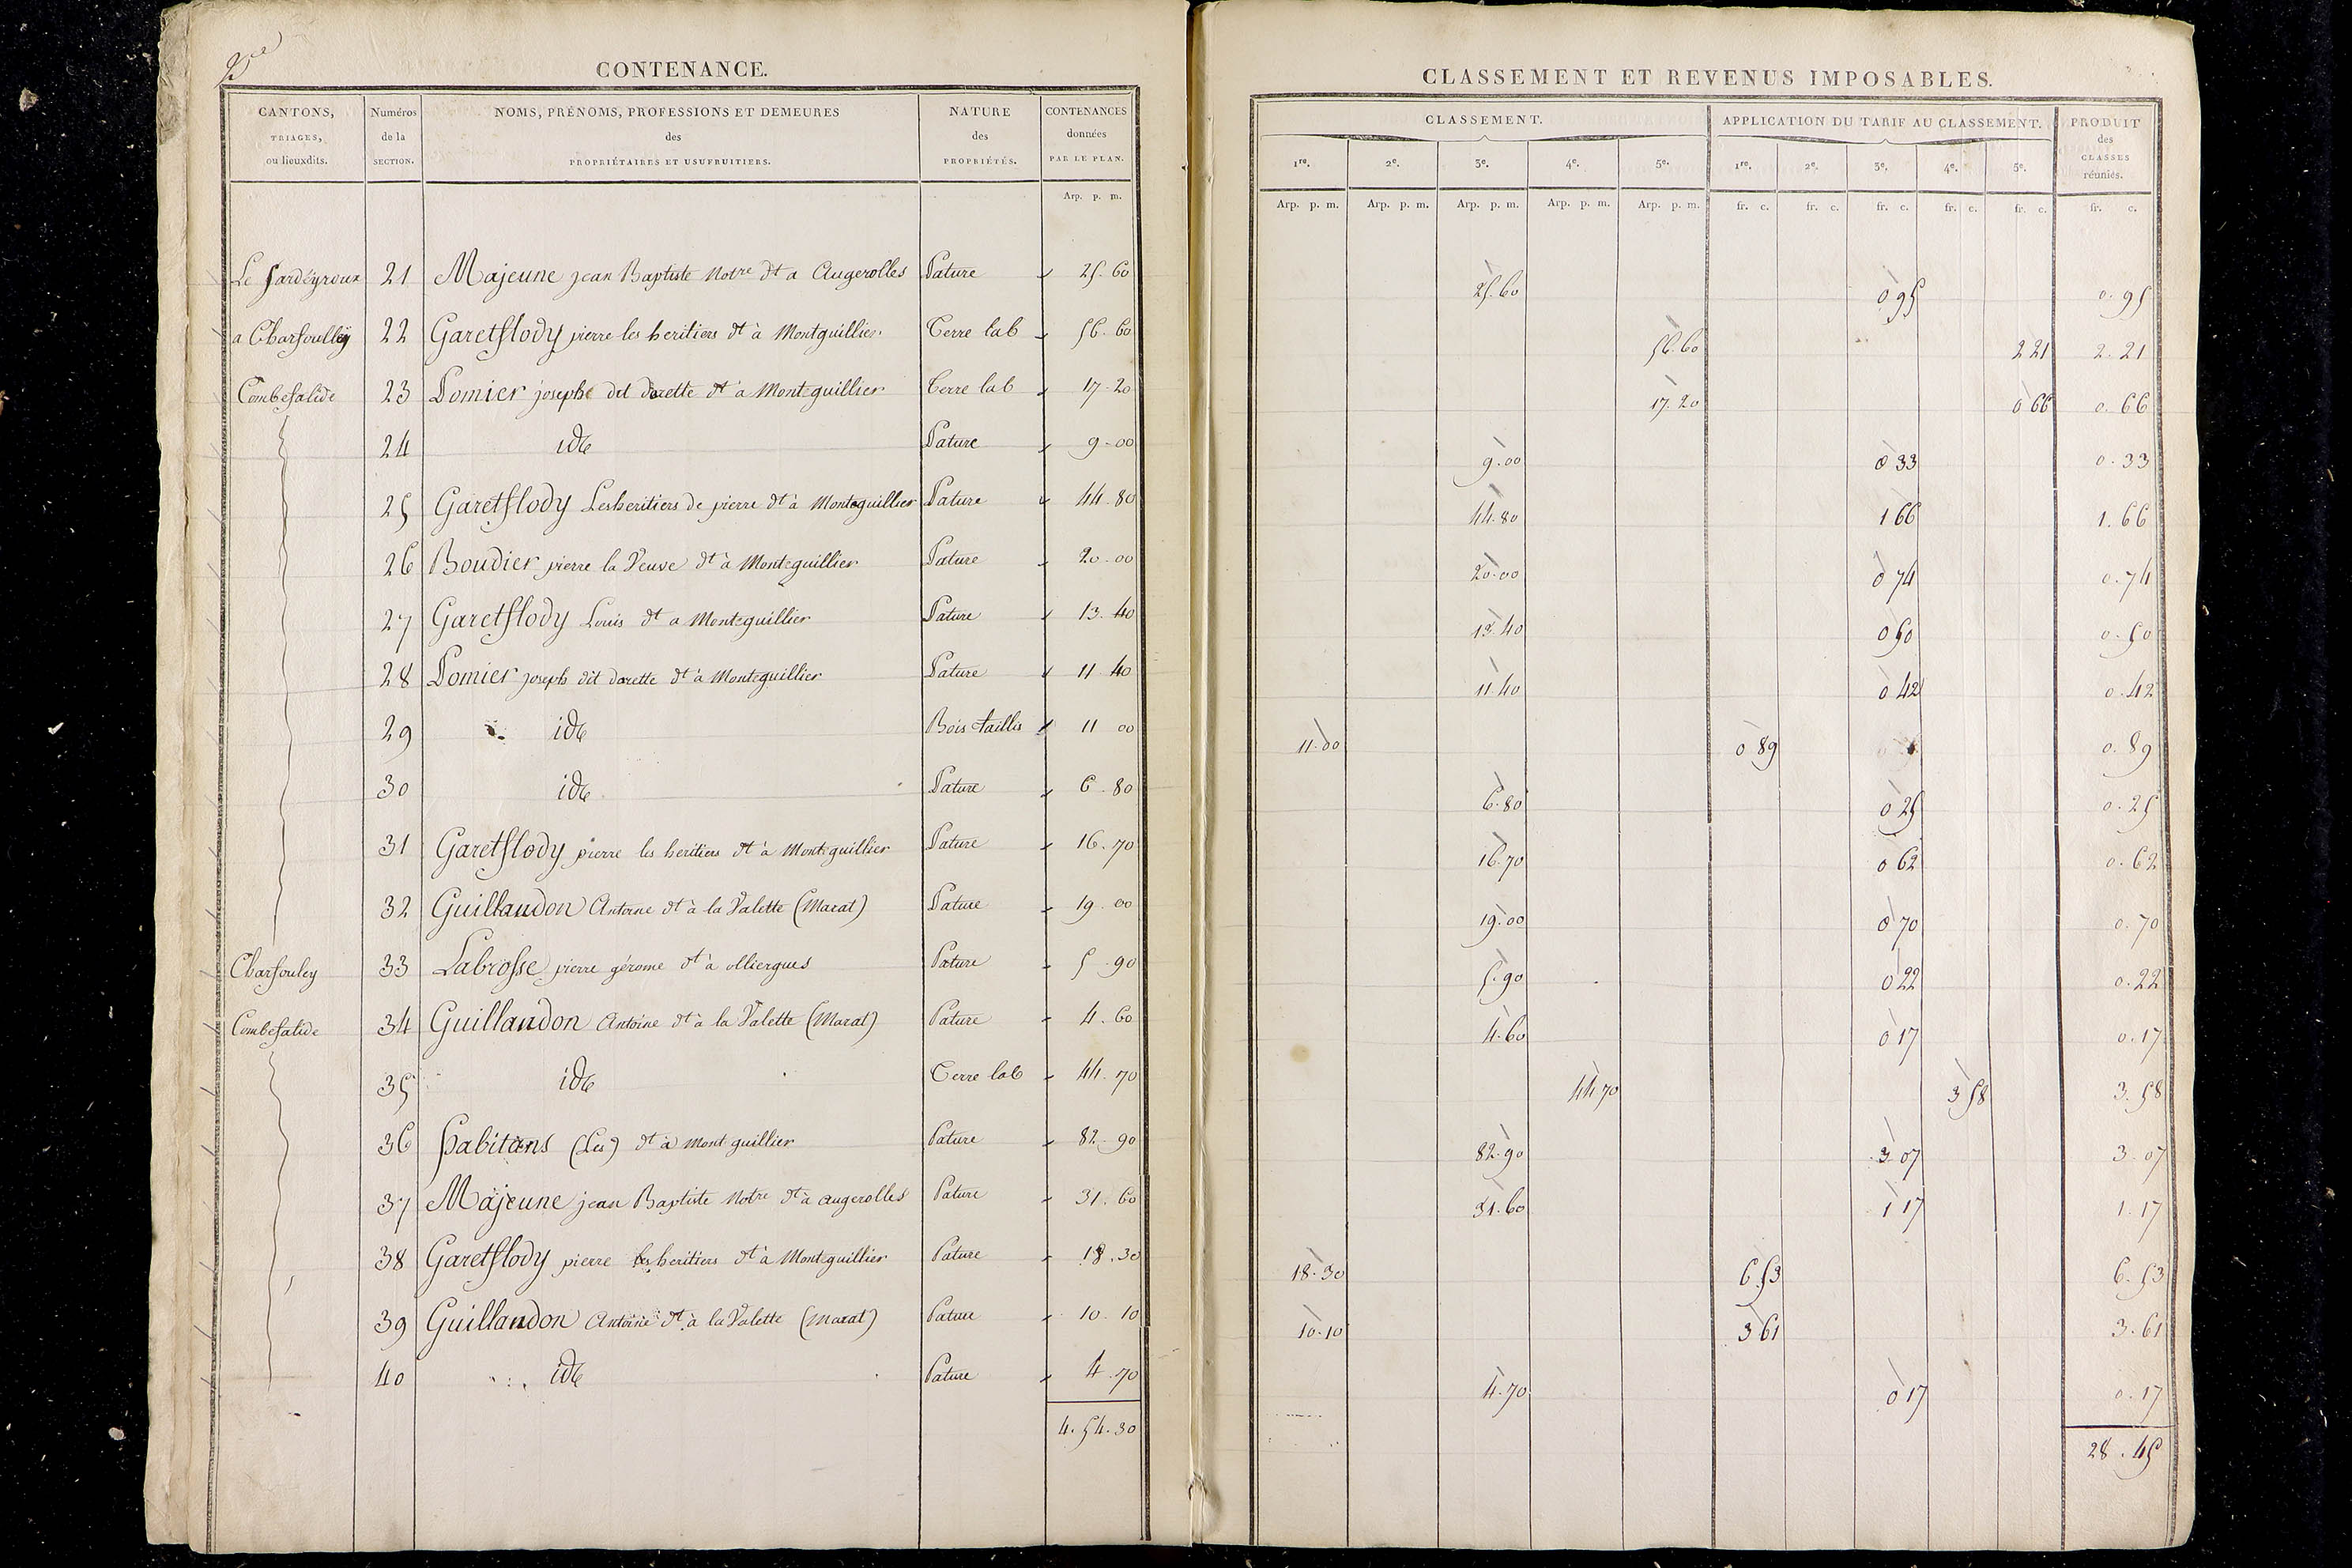 CONTENANCE.
CANTONS, TRIAGES, ou lieuxdits. | Numéros de la SECTION. | NOMS, PRÉNOMS, PROFESSIONS ET DEMEURES des PROPRIÉTAIRES ET USUFRUITIERS. | NATURE des PROPRIÉTÉS. | CONTENANCES données PAR LE PLAN.
Arp. p. m.
21 Majeune jean Baptiste Notre dt a Augerolles Pature 25.60
a Charfoulley 22 Garetflody pierre les heritiers dt à Montguillier Terre lab 56.60
Combefalide 23 Pomier josephe dit darette dt a Monteguillier Terre lab 17-20
24 ide Pature 9-00
25 Garetflody Lesheritiers de pierre dt à Monteguillier Pature 44.80
26 Boudier pierre la Veuve dt à Monteguillier Pature 20.00
27 Garetflody Louis dt a Monteguillier Pature 13.40
28 Pomier joseph dit darette dt à Monteguillier Pature 11 40
29 ide Bois taillis 11 00
30 ide Pature 6.80
31 Garetflody pierre les heritiers dt à Monteguillier Pature 16.70
32 Guillaudon Antoine dt à la Valette (Marat) Pature 19.00
Charfouley 33 Labrosse pierre gérome dt à olliergues Pature 5.90
Combefalide 34 Guillaudon Antoine dt à la Valette (Marat) Pature 4.60
35 ide Terre lab 44.70
36 habitans (Les) dt à Mont guillier Pature 82-90
37 Majeune jean Baptiste Notre dt à augerolles Pature 31.60
38 Garetflody pierre les heritiers dt à Monteguillier Pature 18.30
39 Guillaudon Antoine dt à la Valette (Marat) Pature 10.10
40 ide Pature 4.70
4.54.30
CLASSEMENT ET REVENUS IMPOSABLES.
CLASSEMENT. | APPLICATION DU TARIF AU CLASSEMENT. | PRODUIT des CLASSES réunies.
1re. 2e. 3e. 4e. 5e. 1re. 2e. 3e. 4e. 5e.
Arp. p. m. Arp. p. m. Arp. p. m. Arp. p. m. Arp. p. m. fr. c. fr. c. fr. c. fr. c. fr. c. fr. c.
25.60 0 95 0.95
56.60 2 21 2.21
17.20 0 66 0.66
9.00 0 33 0.33
44.80 1 66 1.66
20.00 0 74 0.74
13.40 0 50 0.50
11.40 0 42 0.42
11.00 0 89 0.89
6.80 0 25 0.25
16.70 0 62 0.62
19.00 0 70 0.70
5.90 0 22 0.22
4.60 0 17 0.17
44.70 3 58 3.58
82.90 3 07 3.07
31.60 1 17 1.17
18.30 6 53 6.53
10.10 3 61 3.61
4.70 0 17 0.17
28.45